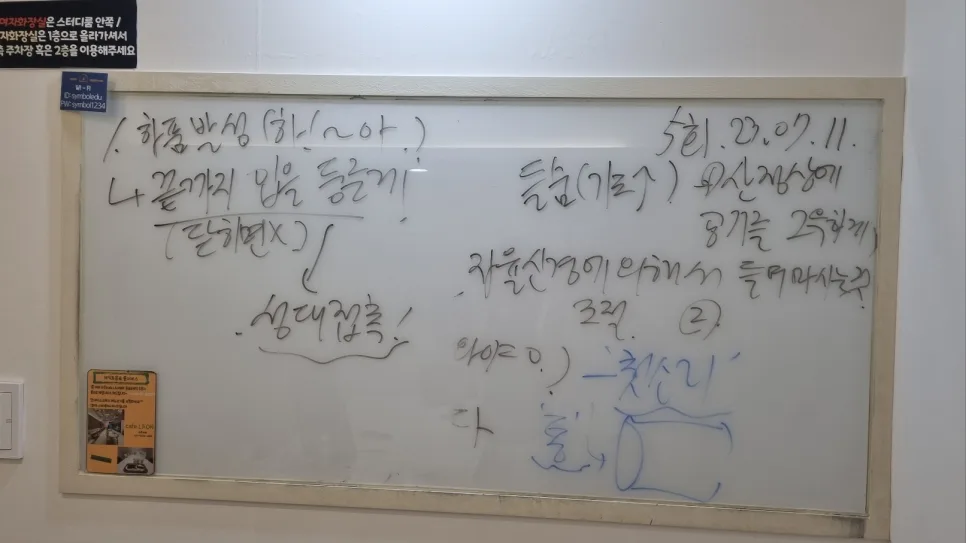 여자화장실은 스터디룸 안쪽 /
자화장실은 1층으로 올라가셔서
측 주차장 혹은 2층을 이용해주세요
ID: symboledu
PW: symbol1234
1. 하품 발성 (하!~아.)
↳ 끝까지 입을 둥글게!
(닫히면X)
성대접촉!
5회. 23.07.11.
들숨(기도↑) ① 산 정상에
공기를 교육하게,
자율신경에 의해서 들여마시는것
조절. ②.
와야드.) - '첫소리'
다 '홉'